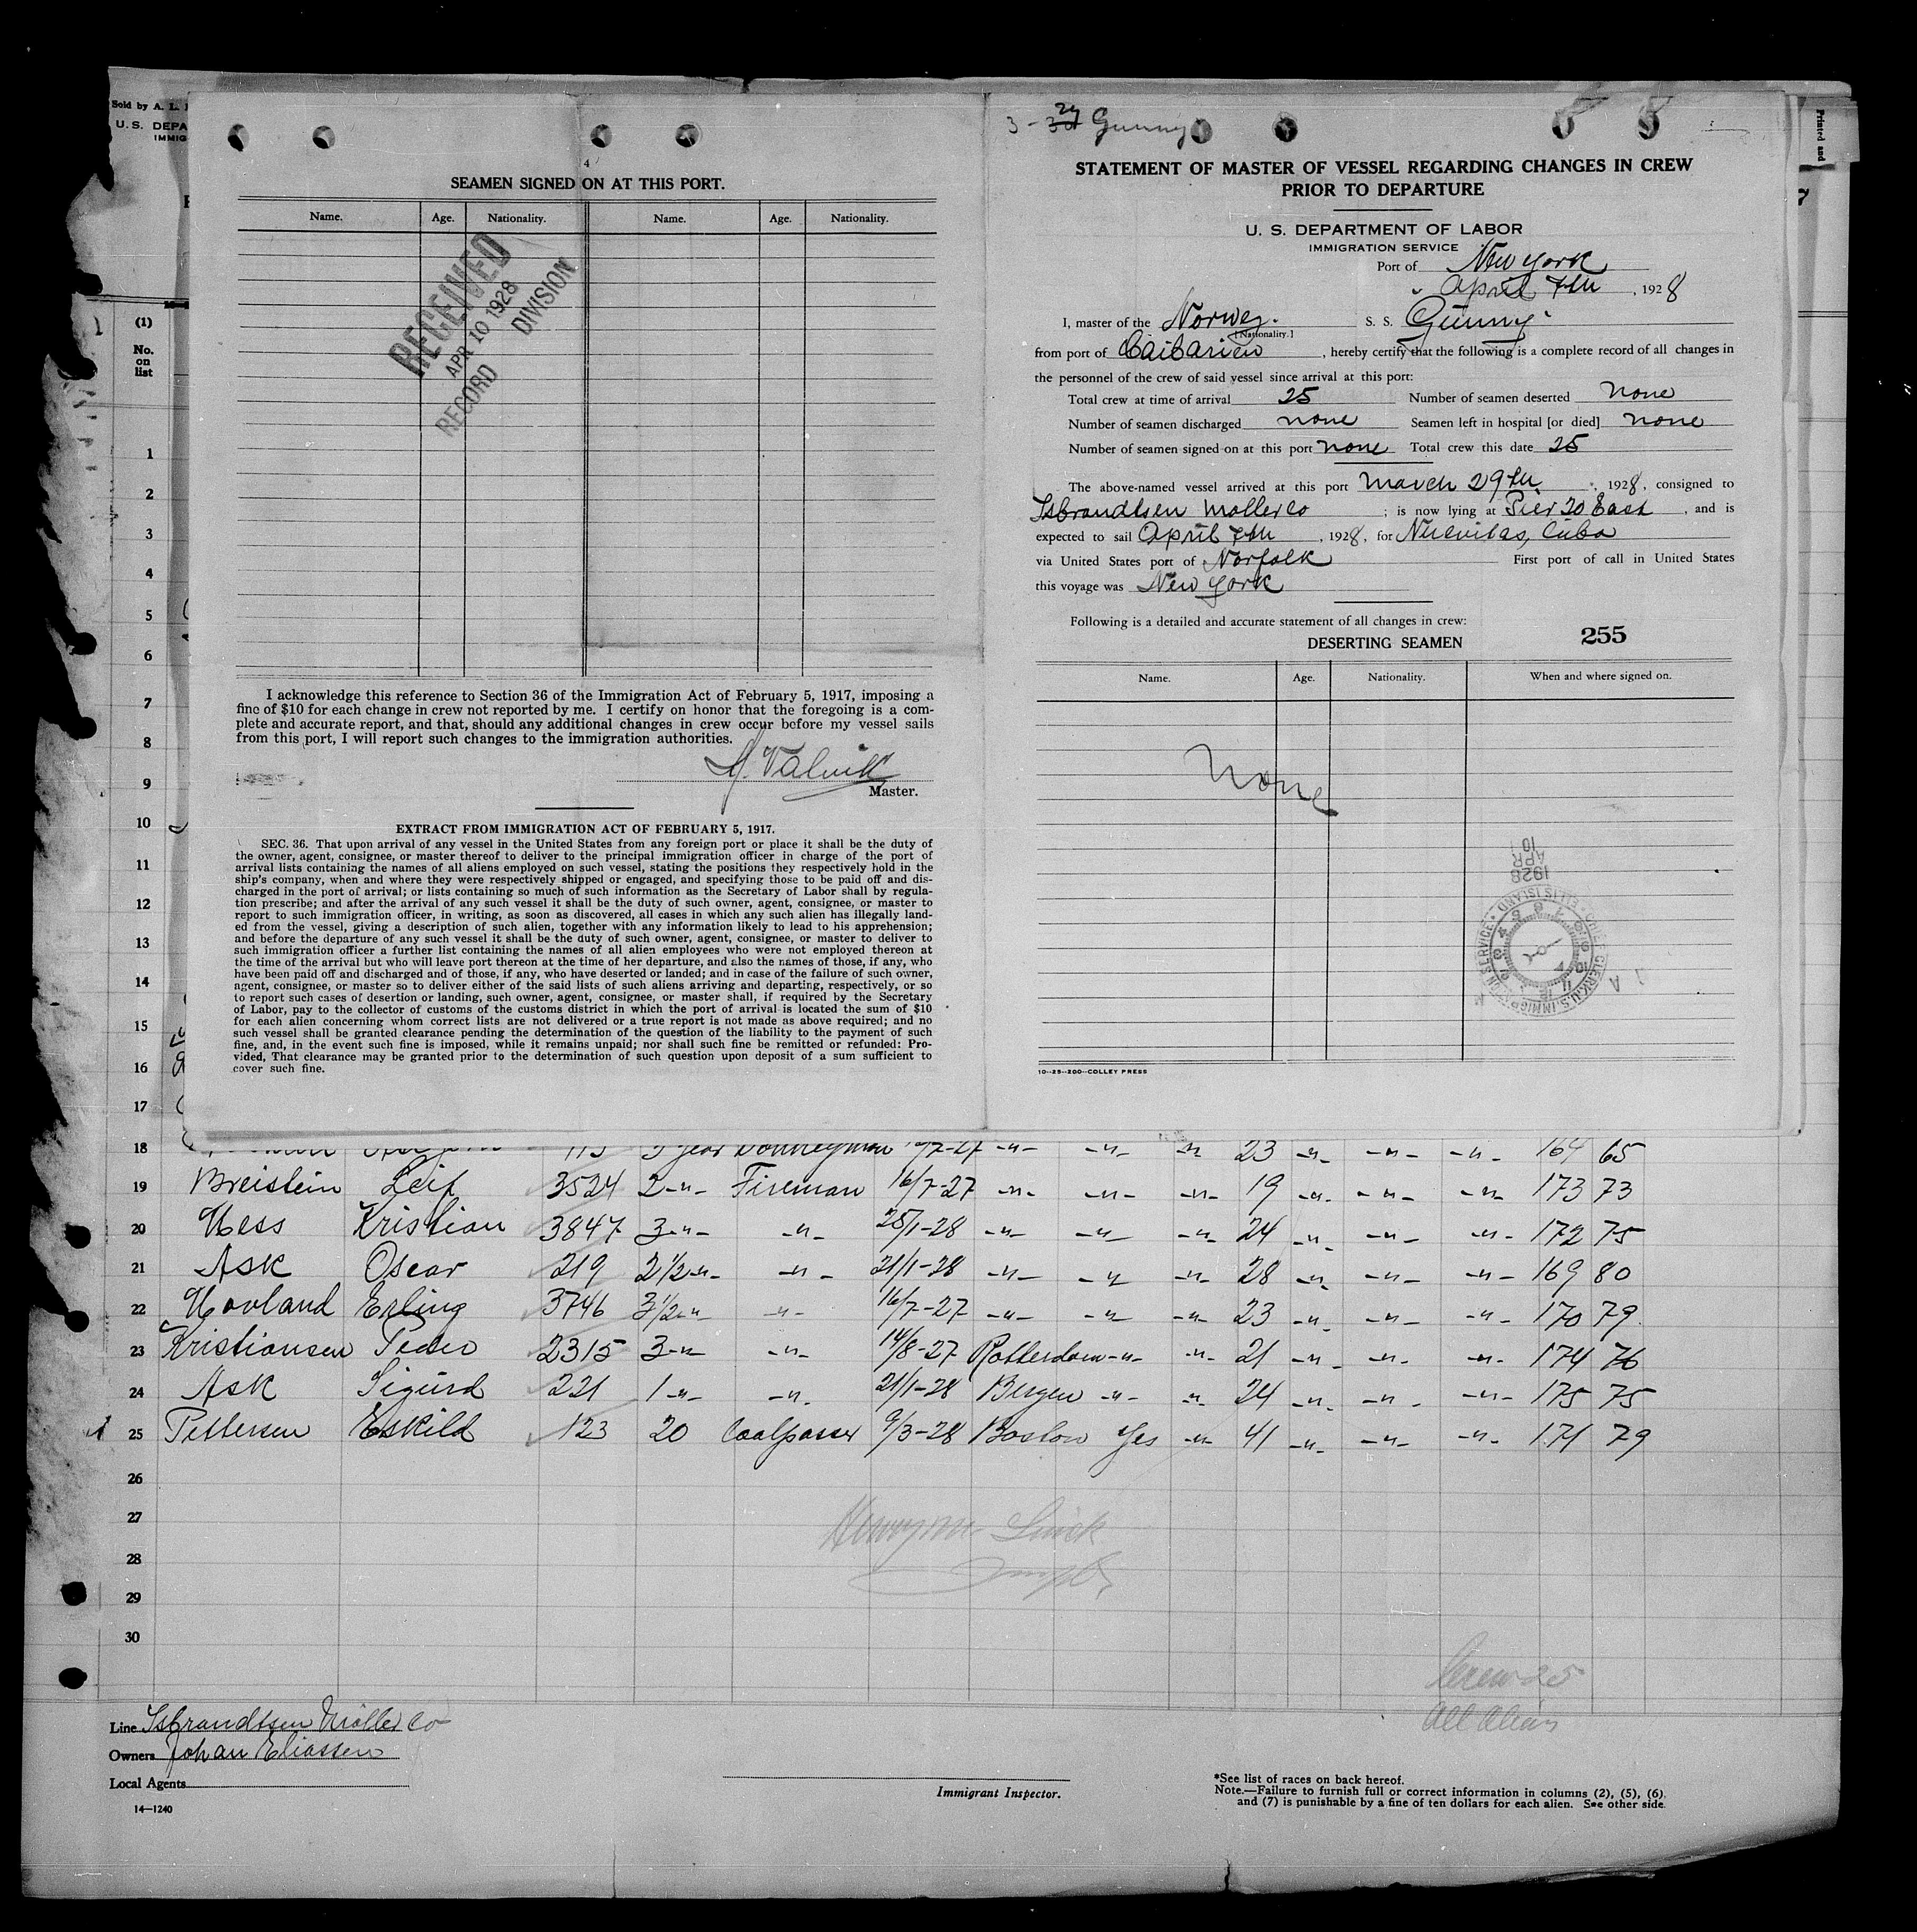 Sold by A. L.
U. S. DEPA
IMMIG
Printed and
(1)
No.
on
list
1
2
3
4
5
6
7
8
9
10
11
12
13
14
15
16
17
4
SEAMEN SIGNED ON AT THIS PORT.
Name. Age. Nationality. Name. Age. Nationality.
RECEIVED
APR 10 1928
RECORD DIVISION
I acknowledge this reference to Section 36 of the Immigration Act of February 5, 1917, imposing a
fine of $10 for each change in crew not reported by me. I certify on honor that the foregoing is a com-
plete and accurate report, and that, should any additional changes in crew occur before my vessel sails
from this port, I will report such changes to the immigration authorities.
Master.
EXTRACT FROM IMMIGRATION ACT OF FEBRUARY 5, 1917.
SEC. 36. That upon arrival of any vessel in the United States from any foreign port or place it shall be the duty of
the owner, agent, consignee, or master thereof to deliver to the principal immigration officer in charge of the port of
arrival lists containing the names of all aliens employed on such vessel, stating the positions they respectively hold in the
ship's company, when and where they were respectively shipped or engaged, and specifying those to be paid off and dis-
charged in the port of arrival; or lists containing so much of such information as the Secretary of Labor shall by regula-
tion prescribe; and after the arrival of any such vessel it shall be the duty of such owner, agent, consignee, or master to
report to such immigration officer, in writing, as soon as discovered, all cases in which any such alien has illegally land-
ed from the vessel, giving a description of such alien, together with any information likely to lead to his apprehension;
and before the departure of any such vessel it shall be the duty of such owner, agent, consignee, or master to deliver to
such immigration officer a further list containing the names of all alien employees who were not employed thereon at
the time of the arrival but who will leave port thereon at the time of her departure, and also the names of those, if any, who
have been paid off and discharged and of those, if any, who have deserted or landed; and in case of the failure of such owner,
agent, consignee, or master so to deliver either of the said lists of such aliens arriving and departing, respectively, or so
to report such cases of desertion or landing, such owner, agent, consignee, or master shall, if required by the Secretary
of Labor, pay to the collector of customs of the customs district in which the port of arrival is located the sum of $10
for each alien concerning whom correct lists are not delivered or a true report is not made as above required; and no
such vessel shall be granted clearance pending the determination of the question of the liability to the payment of such
fine, and, in the event such fine is imposed, while it remains unpaid; nor shall such fine be remitted or refunded: Pro-
vided, That clearance may be granted prior to the determination of such question upon deposit of a sum sufficient to
cover such fine.
3-29 Gunny
STATEMENT OF MASTER OF VESSEL REGARDING CHANGES IN CREW
PRIOR TO DEPARTURE
U. S. DEPARTMENT OF LABOR
IMMIGRATION SERVICE
Port of New York
April 7th, 1928
I, master of the Norweg. S. S. Gunny
[Nationality.]
from port of Caibarien, hereby certify that the following is a complete record of all changes in
the personnel of the crew of said vessel since arrival at this port:
Total crew at time of arrival 25 Number of seamen deserted none
Number of seamen discharged none Seamen left in hospital [or died] none
Number of seamen signed on at this port none Total crew this date 25
The above-named vessel arrived at this port March 29th, 1928, consigned to
Isbrandtsen Moller Co; is now lying at Pier 20 East, and is
expected to sail April 7th, 1928, for Nuevitas, Cuba
via United States port of Norfolk First port of call in United States
this voyage was New York
Following is a detailed and accurate statement of all changes in crew:
DESERTING SEAMEN 255
Name. Age. Nationality. When and where signed on.
None
1928
APR
10
CHIEF CLERK, U.S. IMMIGRATION SERVICE • ELLIS ISLAND •
10--25--200--COLLEY PRESS
18 3 year Donkeyman 16/7-27 -"- -"- -"- 23 -"- -"- -"- 164 65
19 Breistein Leif 3524 2 -"- Fireman 16/7-27 -"- -"- -"- 19 -"- -"- -"- 173 73
20 Hess Kristian 3847 3 -"- -"- 25/1-28 -"- -"- -"- 24 -"- -"- -"- 172 75
21 Ask Oscar 219 2 1/2 -"- -"- 21/1-28 -"- -"- -"- 28 -"- -"- -"- 169 80
22 Hovland Erling 3746 3 1/2 -"- -"- 16/7-27 -"- -"- -"- 23 -"- -"- -"- 170 79
23 Kristiansen Peder 2315 3 -"- -"- 14/8-27 Rotterdam -"- -"- 21 -"- -"- -"- 174 76
24 Ask Sigurd 221 1 -"- -"- 21/1-28 Bergen -"- -"- 24 -"- -"- -"- 175 75
25 Pettersen Eskild 123 20 Coalpasser 9/3-28 Boston Yes -"- 41 -"- -"- -"- 171 79
26
27
28
29
30
Crew 25
All Alien
Line Isbrandtsen Möller Co
Owners Johan Eliassen
Local Agents
14—1240
Immigrant Inspector.
*See list of races on back hereof.
Note.—Failure to furnish full or correct information in columns (2), (5), (6)
and (7) is punishable by a fine of ten dollars for each alien. See other side.